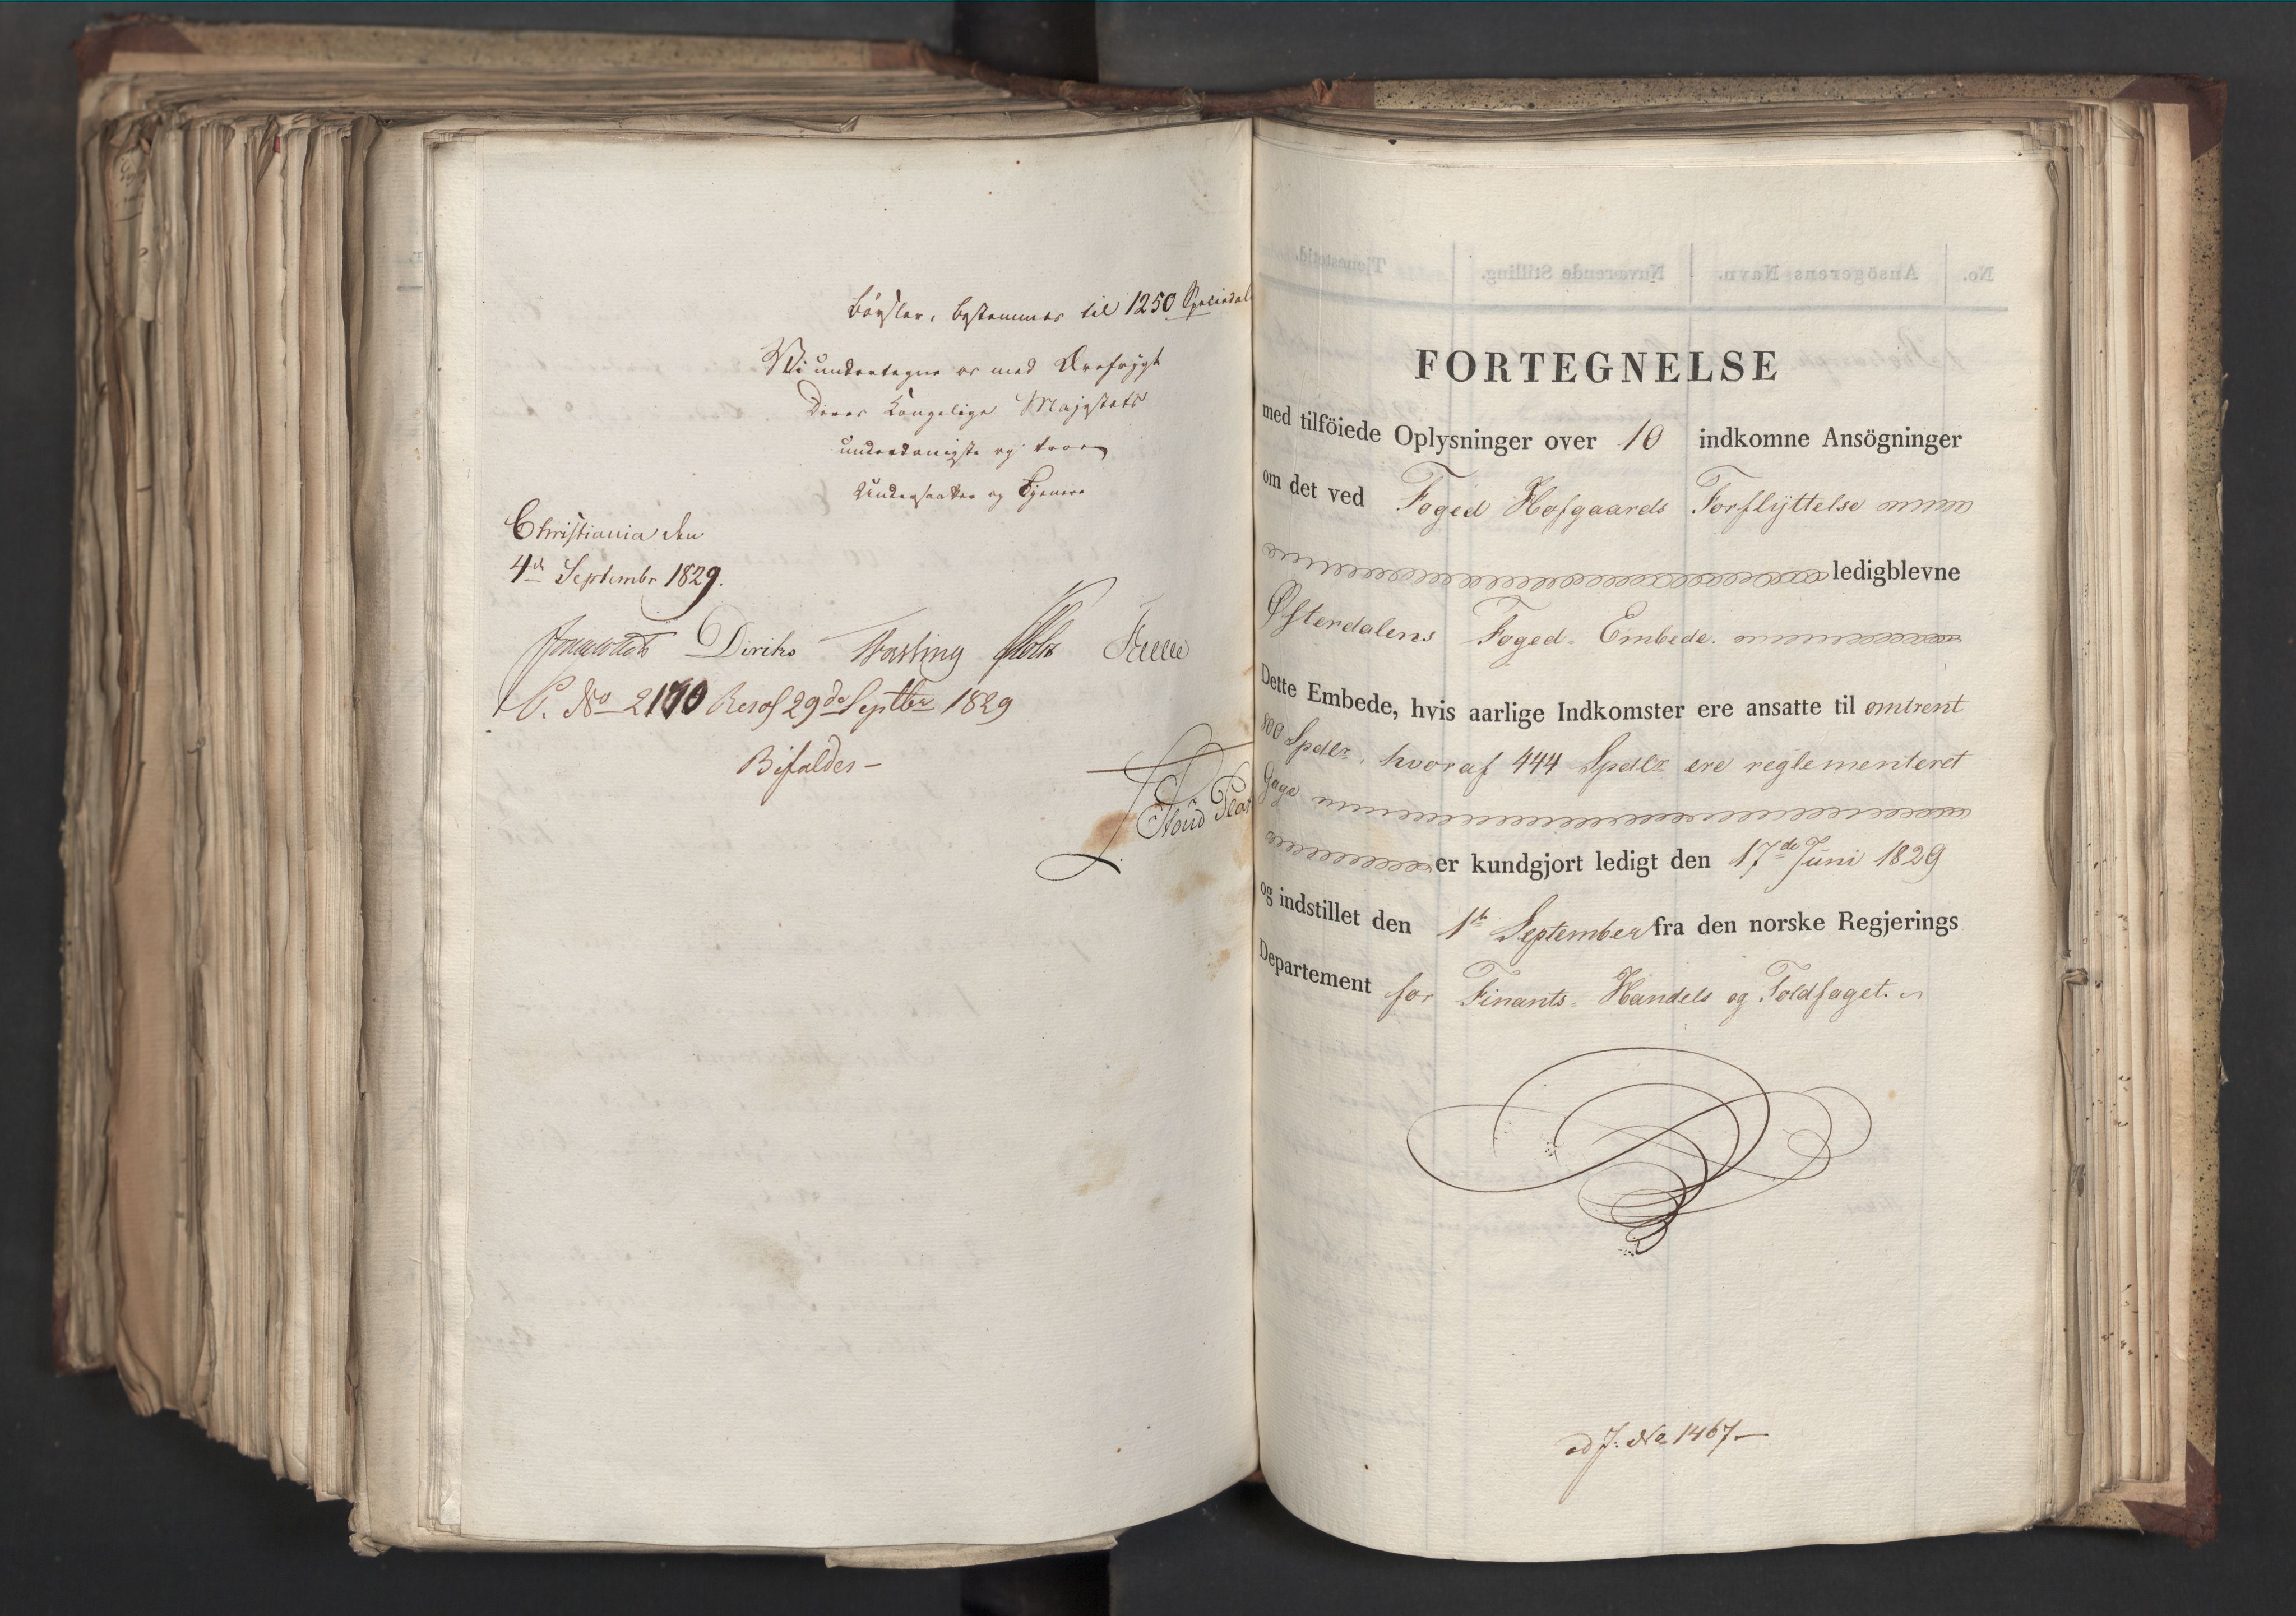 bøyler, bestemmes til 1250 Speciedal
Vi undertegne os med Ærefrygt
Deres Kongelige Majestæts
underdanigste og troe
Undersaatter og Tjenere
Christiania den
4de Septembr 1829.
Diriks Fasting Holst Krieg
P. No 2170 Resol 29de Septbr 1829
Bifaldes –
No. Ansögerens Navn. Nuværende Stilling. Tjenestetid.
FORTEGNELSE
med tilföiede Oplysninger over 10 indkomne Ansögninger
om det ved Foged Hofgaards Forflyttelse
ledigblevne
Østerdalens Foged-Embede.
Dette Embede, hvis aarlige Indkomster ere ansatte til omtrent
800 Spdlr, hvoraf 444 Spdlr ere reglementeret
Gage
er kundgjort ledigt den 17de Juni 1829
og indstillet den 1te September fra den norske Regjerings
Departement for Finants- Handels og Toldfaget.
ad J: No 1467 –